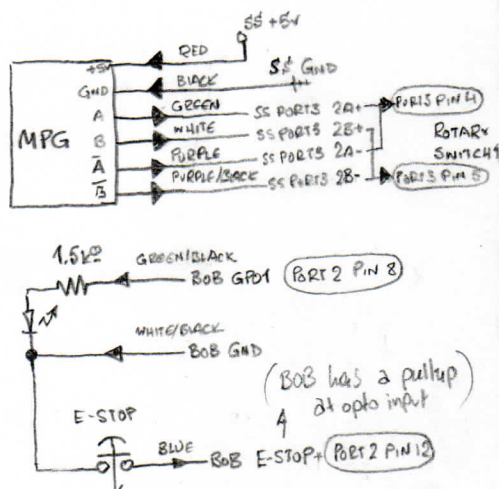 SS +5V
+5V RED
GND BLACK SS GND
MPG
A GREEN SS PORT3 2A+ PORT3 PIN 4
B WHITE SS PORT3 2B+ ROTARY
A PURPLE SS PORT3 2A- SWITCH
B PURPLE/BLACK SS PORT3 2B- PORT3 PIN 5
1.5k GREEN/BLACK
BOB GPO1 PORT 2 PIN 8
WHITE/BLACK
BOB GND
(BOB has a pullup
at opto input)
E-STOP
BLUE BOB E-STOP+ PORT 2 PIN 12